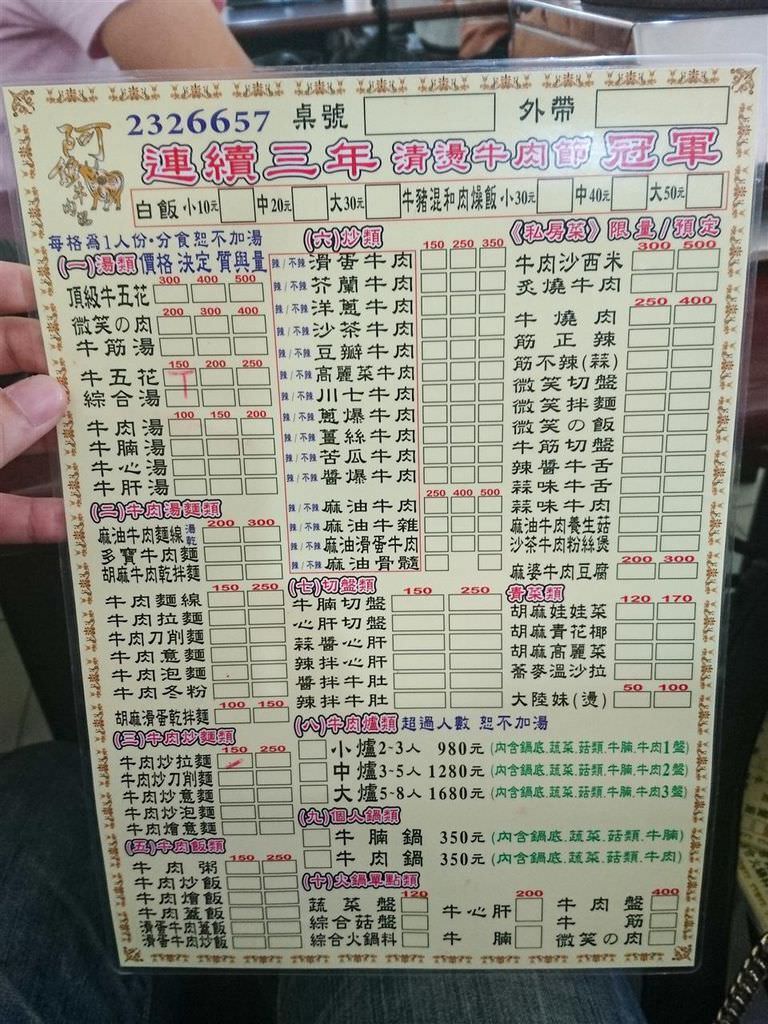 2326657 桌號 外帶
連續三年 清燙牛肉節 冠軍
白飯 小10元 中20元 大30元 牛豬混和肉燥飯 小30元 中40元 大50元
每格為1人份·分食恕不加湯
(一)湯類 價格 決定 質與量
300 400 500
頂級牛五花
200 300 400
微笑の肉
牛筋湯
150 200 250
牛五花
綜合湯
100 150 200
牛肉湯
牛腩湯
牛心湯
牛肝湯
(二)牛肉湯麵類
200 300
麻油牛肉麵線 湯 乾
多寶牛肉麵
胡麻牛肉乾拌麵
150 250
牛肉麵線
牛肉拉麵
牛肉刀削麵
牛肉意麵
牛肉泡麵
牛肉冬粉
100 150
胡麻滑蛋乾拌麵
(三)牛肉炒麵類
150 250
牛肉炒拉麵
牛肉炒刀削麵
牛肉炒意麵
牛肉炒泡麵
牛肉燴意麵
(五)牛肉飯類
150 250
牛肉粥
牛肉炒飯
牛肉燴飯
牛肉蓋飯
滑蛋牛肉蓋飯
滑蛋牛肉炒飯
(六)炒類
150 250 350
辣/不辣 滑蛋牛肉
辣/不辣 芥蘭牛肉
辣/不辣 洋蔥牛肉
辣/不辣 沙茶牛肉
辣/不辣 豆瓣牛肉
辣/不辣 高麗菜牛肉
辣/不辣 川七牛肉
辣/不辣 蔥爆牛肉
辣/不辣 薑絲牛肉
辣/不辣 苦瓜牛肉
辣/不辣 醬爆牛肉
250 400 500
辣/不辣 麻油牛肉
辣/不辣 麻油牛雜
辣/不辣 麻油滑蛋牛肉
辣/不辣 麻油骨髓
(七)切盤類
150 250
牛腩切盤
心肝切盤
蒜醬心肝
辣拌心肝
醬拌牛肚
辣拌牛肚
《私房菜》限量/預定
300 500
牛肉沙西米
炙燒牛肉
250 400
牛燒肉
筋正辣
筋不辣(蒜)
微笑切盤
微笑拌麵
微笑の飯
牛筋切盤
辣醬牛舌
蒜味牛舌
蒜味牛肉
麻油牛肉養生菇
沙茶牛肉粉絲煲
200 300
麻婆牛肉豆腐
青菜類
120 170
胡麻娃娃菜
胡麻青花椰
胡麻高麗菜
蕎麥溫沙拉
50 100
大陸妹(燙)
(八)牛肉爐類 超過人數 恕不加湯
小爐2-3人 980元 (內含鍋底.蔬菜.菇類.牛腩.牛肉1盤)
中爐3-5人 1280元 (內含鍋底.蔬菜.菇類.牛腩.牛肉2盤)
大爐5-8人 1680元 (內含鍋底.蔬菜.菇類.牛腩.牛肉3盤)
(九)個人鍋類
牛腩鍋 350元 (內含鍋底.蔬菜.菇類.牛腩)
牛肉鍋 350元 (內含鍋底.蔬菜.菇類.牛肉)
(十)火鍋單點類
120
蔬菜盤
綜合菇盤
綜合火鍋料
200
牛心肝
牛腩
400
牛肉盤
牛筋
微笑の肉